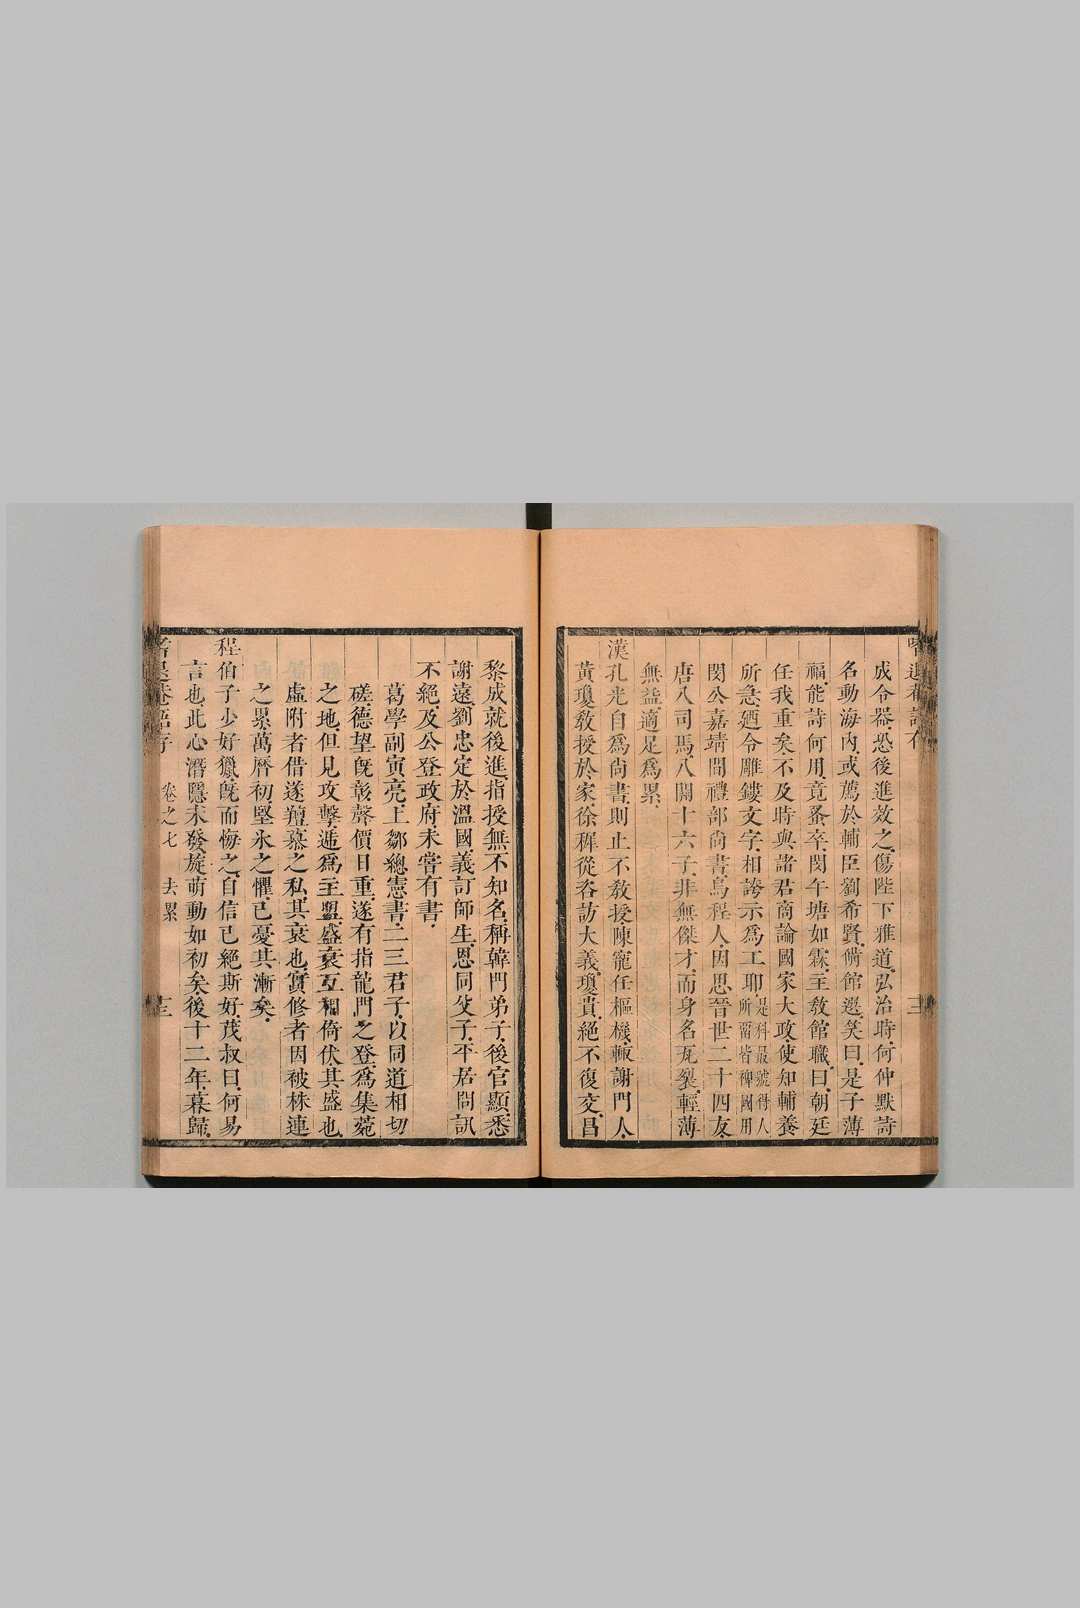 成令器恐後進效之傷陛下雅道弘治時何仲默詩
名動海內或薦於輔臣劉希賢備館選笑曰是子薄
福能詩何用竟蚤卒閔午塘如霖主敎館職曰朝廷
任我重矣不及時與諸君商論國家大政使知輔養
所急廼令雕鏤文字相誇示爲工耶是科最號得人所畱皆裨國用
閔公嘉靖間禮部尙書烏程人因思晉世二十四友
唐八司馬八關十六子非無傑才而身名瓦裂輕薄
無益適足爲累
漢孔光自爲尙書則止不敎授陳寵任樞機輒謝門人
黃瓊敎授於家徐穉從咨訪大義瓊貴絕不復交昌
黎成就後進指授無不知名稱韓門弟子後官顯悉
謝遠劉忠定於溫國義訂師生恩同父子平居問訊
不絕及公登政府未嘗有書
葛學副寅亮王鄒總憲書二三君子以同道相切
磋德望旣彰聲價日重遂有指龍門之登爲集菀
之地但見攻擊遞爲主盟盛衰互相倚伏其盛也
虛附者借遂羶慕之私其衰也實修者因被株連
之累萬曆初堅氷之懼已憂其漸矣
程伯子少好獵旣而悔之自信已絕斯好茂叔曰何易
言也此心潛隱未發旋萌動如初矣後十二年暮歸
耆退菴語存 卷之七 去累 十三